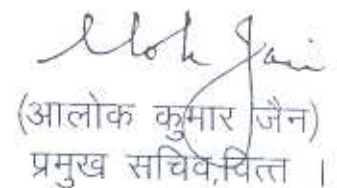 Alok Jain
(आलोक कुमार जैन)
प्रमुख सचिव,वित्त ।